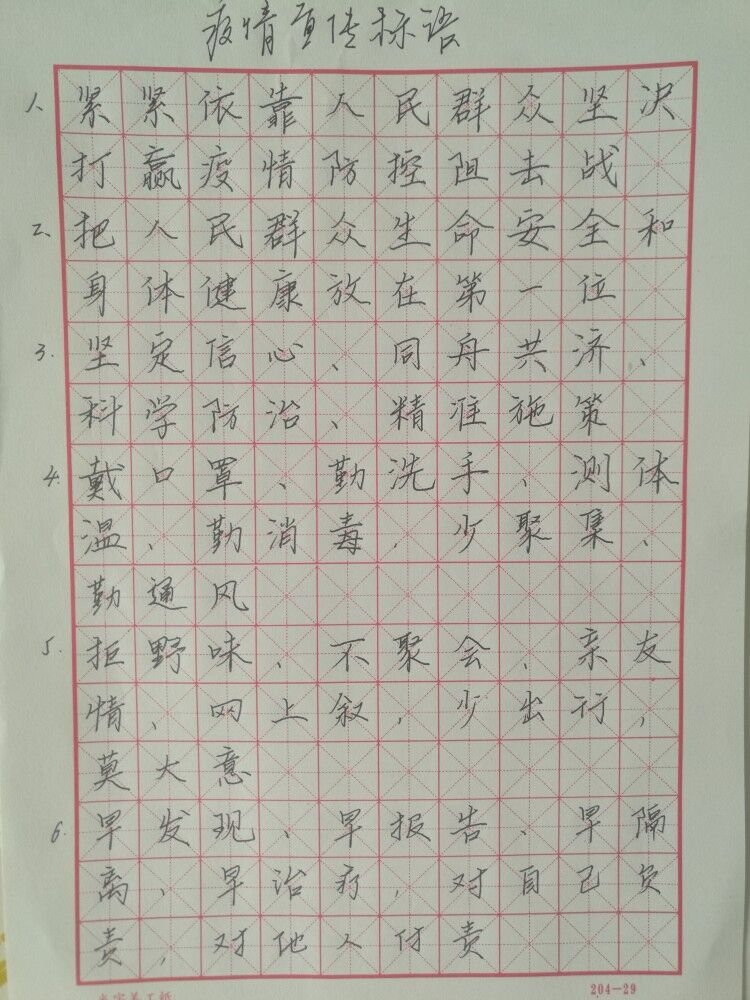 疫情宣传标语
1、紧紧依靠人民群众坚决
打赢疫情防控阻击战
2、把人民群众生命安全和
身体健康放在第一位
3.坚定信心、同舟共济、
科学防治、精准施策
4.戴口罩、勤洗手、测体
温、勤消毒,少聚集、
勤通风
5.拒野味、不聚会、亲友
情、网上叙,少出行,
莫大意
6.早发现、早报告、早隔
离、早治疗,对自己负
责,对他人付责
204—29